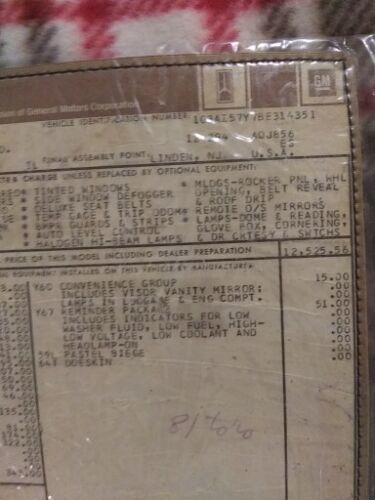 ision of General Motors Corporation
GM
VEHICLE IDENTIFICATION NUMBER:
ADJ856
IL FINAL ASSEMBLY POINT: LINDEN, NJ U.S.A.
CHARGE UNLESS REPLACED BY OPTIONAL EQUIPMENT:
* TINTED WINDOWS * MLDGS-ROCKER PNL, WHL
* SIDE WINDOW DEFOGGER OPENING, BELT REVEAL
* DELUXE SEAT BELTS & ROOF DRIP
* TEMP GAGE & TRIP ODOM * REMOTE O/S MIRRORS
* BMPR GUARDS & STRIPS * LAMPS-DOME & READING,
* AUTO LEVEL CONTROL GLOVE BOX, CORNERING
* HALOGEN HI-BEAM LAMPS & DR CRTESY & SWTCHG
PRICE OF THIS MODEL INCLUDING DEALER PREPARATION 12,525.56
EQUIPMENT INSTALLED ON THIS VEHICLE BY MANUFACTURER
Y60 CONVENIENCE GROUP 15.00
INCLUDES VISOR VANITY MIRROR: .00
LAMPS IN LUGGAGE & ENG COMPT. .00
Y67 REMINDER PACKAGE 51.00
INCLUDES INDICATORS FOR LOW .00
WASHER FLUID, LOW FUEL, HIGH- .00
LOW VOLTAGE, LOW COOLANT AND .00
HEADLAMP-ON .00
59L PASTEL BIEGE .00
64T DOESKIN .00